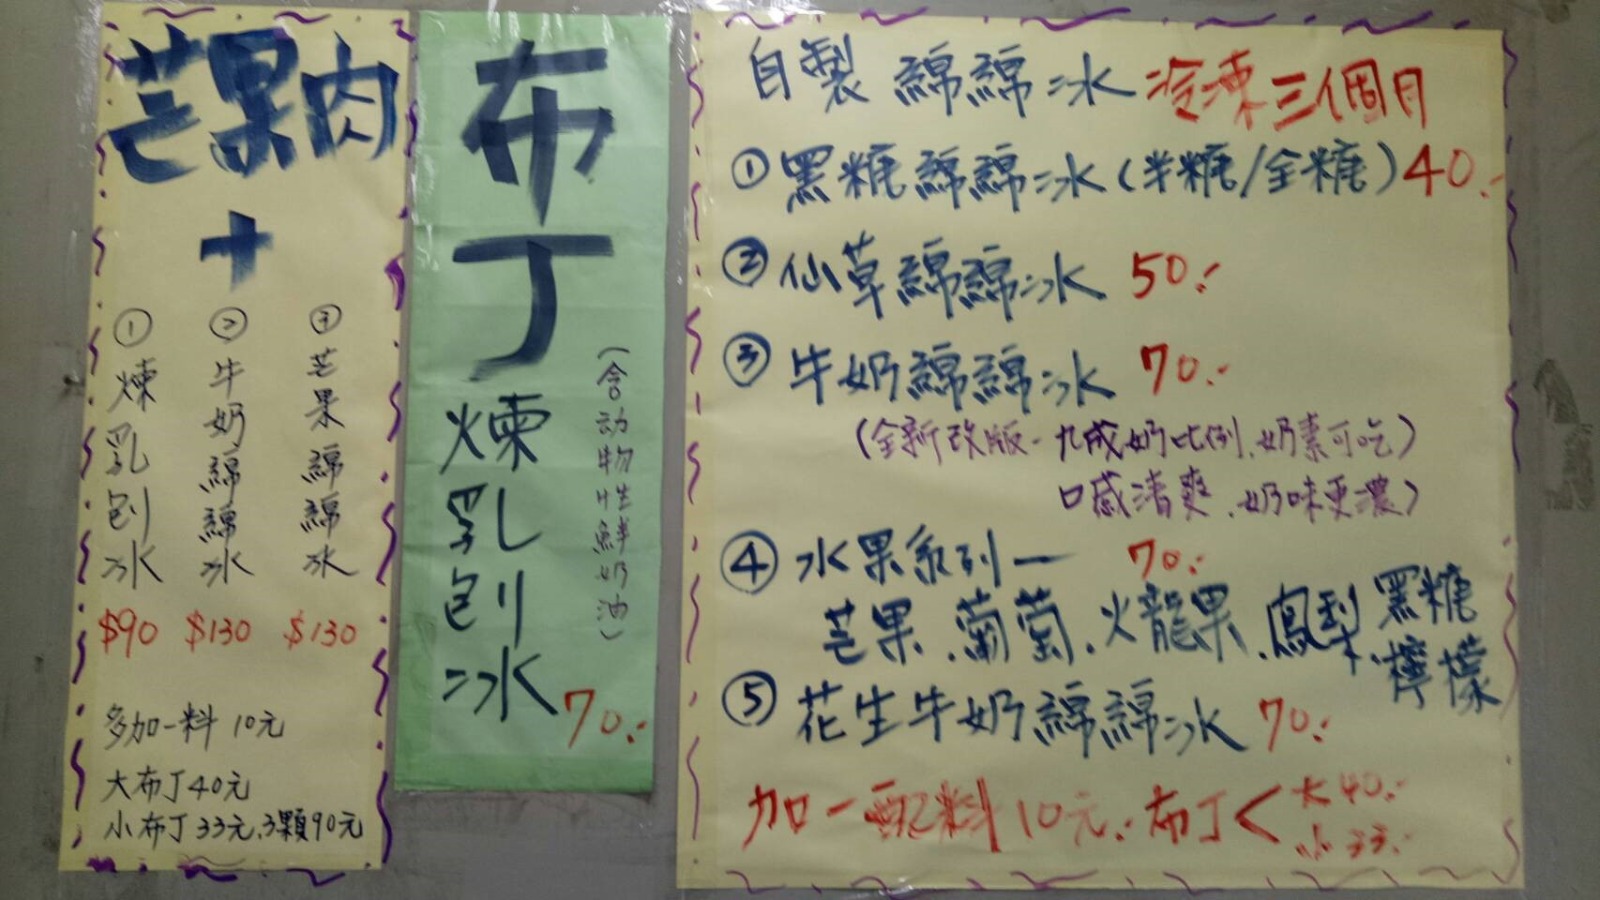 芒果肉
+
①煉乳刨冰
$90
②牛奶綿綿冰
$130
③芒果綿綿冰
$130
多加一料 10元
大布丁40元
小布丁33元,3顆90元
布丁
煉乳刨冰 70.-
(含动物性鮮奶油)
自製 綿綿冰 冷凍三個月
①黑糖綿綿冰(半糖/全糖)40.-
②仙草綿綿冰 50.-
③牛奶綿綿冰 70.-
(全新改版-九成奶比例、奶素可吃)
口感清爽、奶味更濃)
④水果系列— 70.-
芒果、葡萄、火龍果、鳳梨、黑糖檸檬
⑤花生牛奶綿綿冰 70.-
加一配料10元.、布丁<大40.-
小33.-